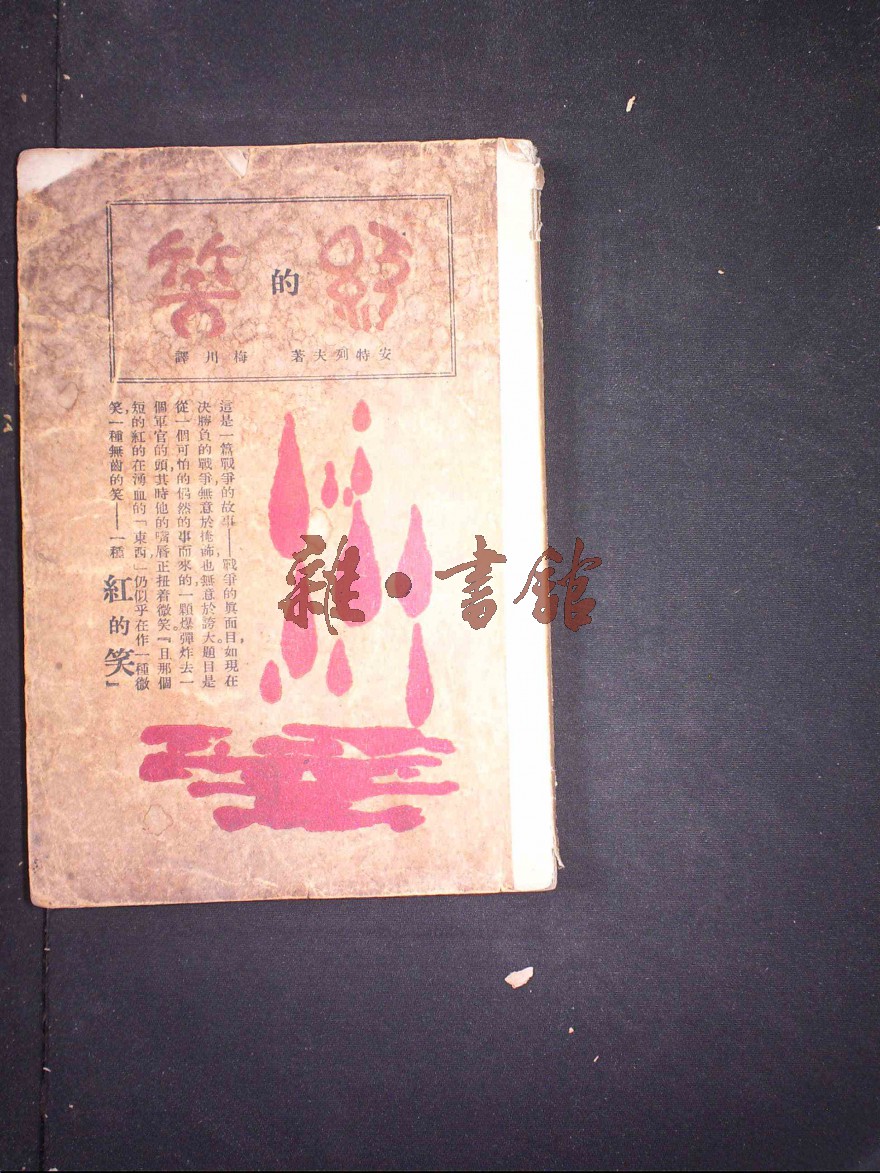 紅的笑
安特列夫著 梅川譯
這是一篇戰爭的故事——戰爭的眞面目,如現在
決勝負的戰爭,無意於也,無意於誇大。題目是
從一個可怕的偶然的事而來的,一顆爆彈炸去一
個軍官的頭,其時他的嘴唇正扭着微笑。『且那個
短的紅的在湧血的「東西」仍似乎在作一種微
笑,一種無齒的笑——一種紅的笑』
雜·書館